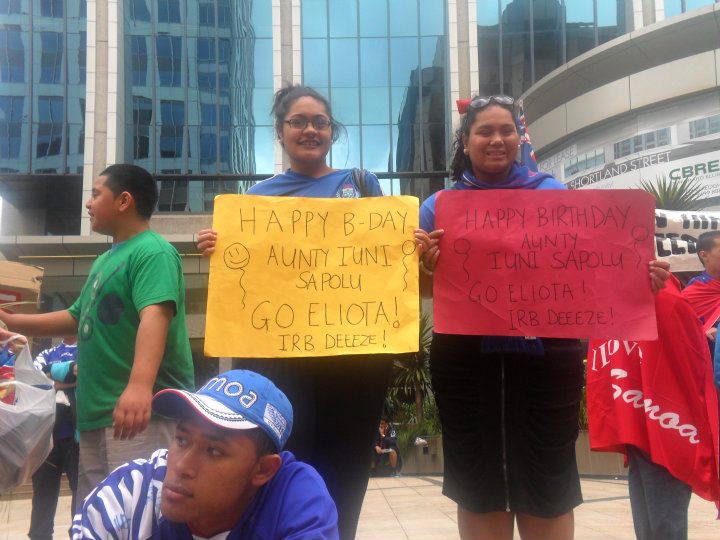 HAPPY B-DAY
AUNTY IUNI
SAPOLU
GO ELIOTA!
IRB DEEEZE!
HAPPY BIRTHDAY
AUNTY
IUNI SAPOLU
GO ELIOTA!
IRB DEEEZE!
SHORTLAND STREET
CBRE
I LOVE
Samoa
moa